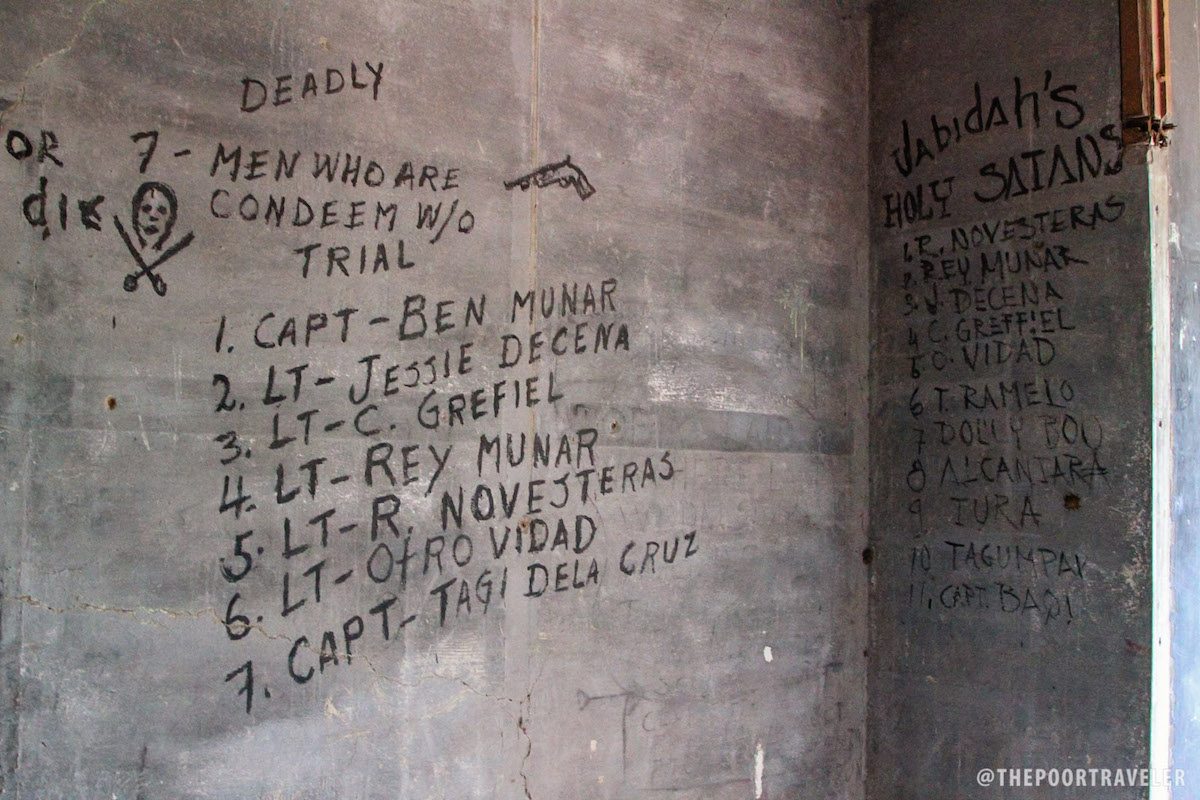 DEADLY
OR 7- MEN WHO ARE
die CONDEEM W/O
TRIAL
1. CAPT-BEN MUNAR
2. LT-JESSIE DECENA
3. LT-C. GREFIEL
4. LT-REY MUNAR
5. LT-R. NOVESTERAS
6. LT-OTRO VIDAD
7. CAPT-TAGI DELA CRUZ
Jabidah's
HOLY SATANS
1. R. NOVESTERAS
2. REY MUNAR
3. J. DECENA
4 C. GREFFIEL
5. O. VIDAD
6 T. RAMELO
7 DOLLY
8 ALCANTARA
9 TURA
10 TAGUMPAY
11. CAPT. BAQI
@THEPOORTRAVELER